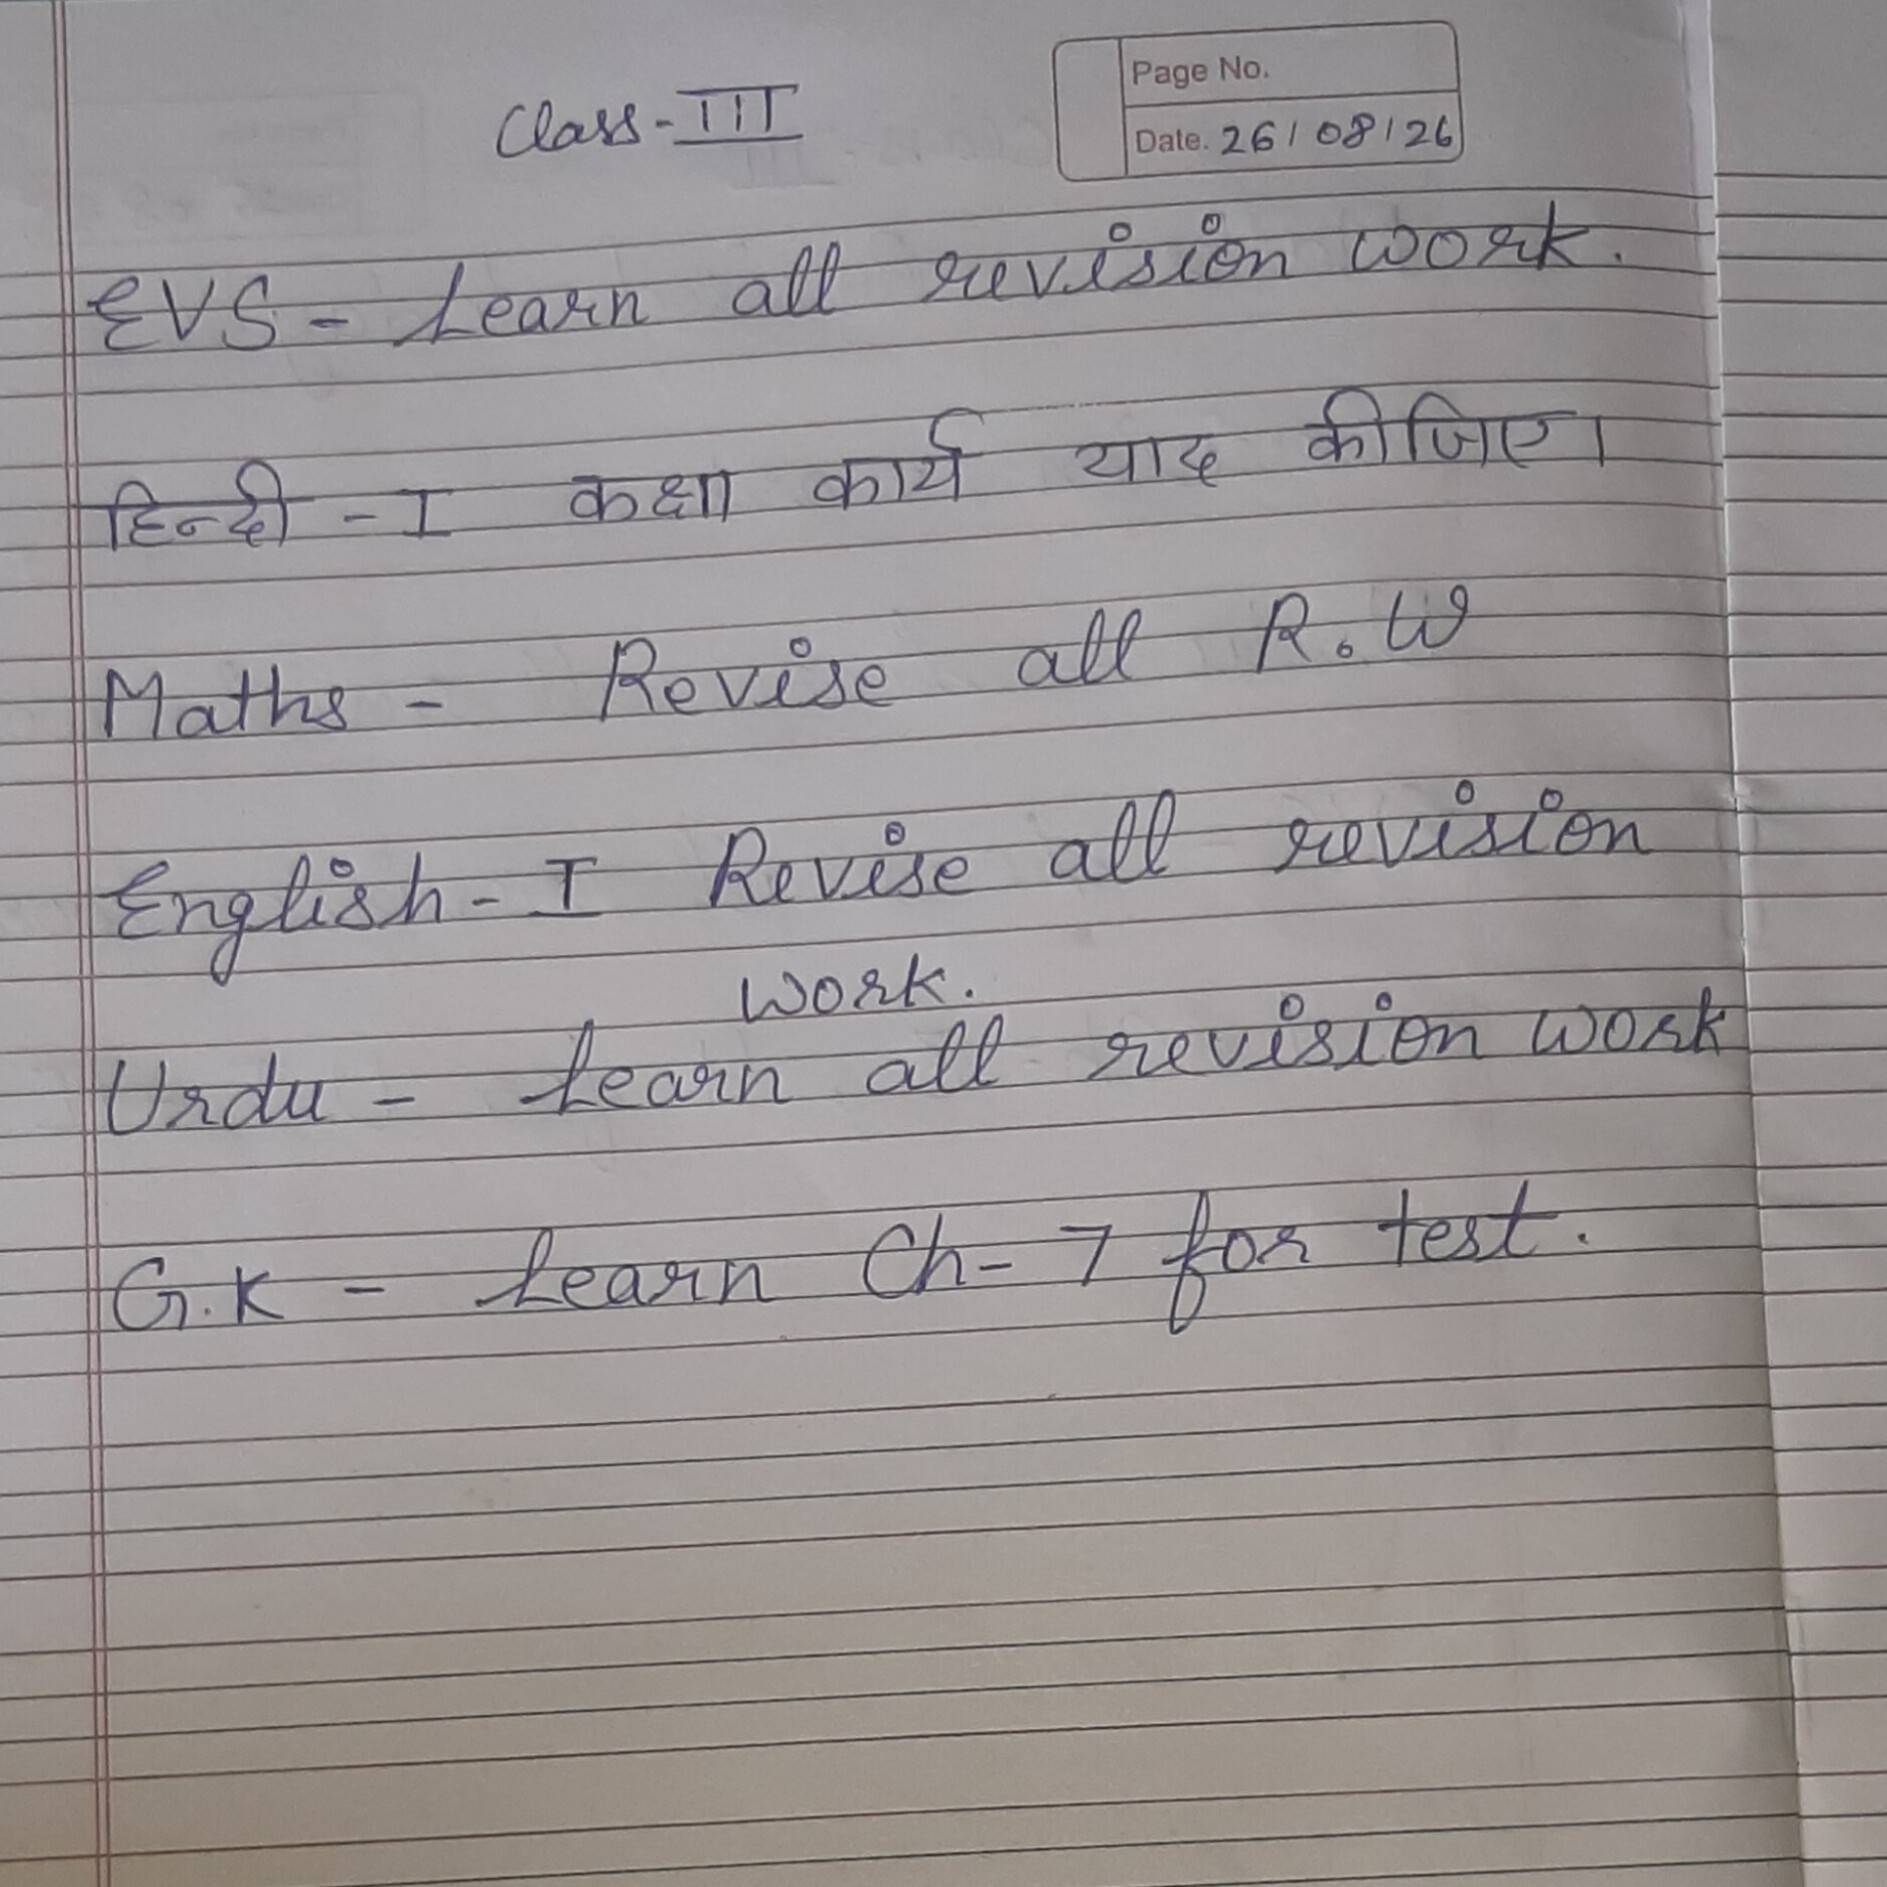 Class-III
Page No.
Date. 26/08/26
EVS - Learn all revision work.
हिन्दी - I कक्षा कार्य याद कीजिए।
Maths - Revise all R.W
English - I Revise all revision
work.
Urdu - Learn all revision work
G.K - Learn Ch-7 for test.